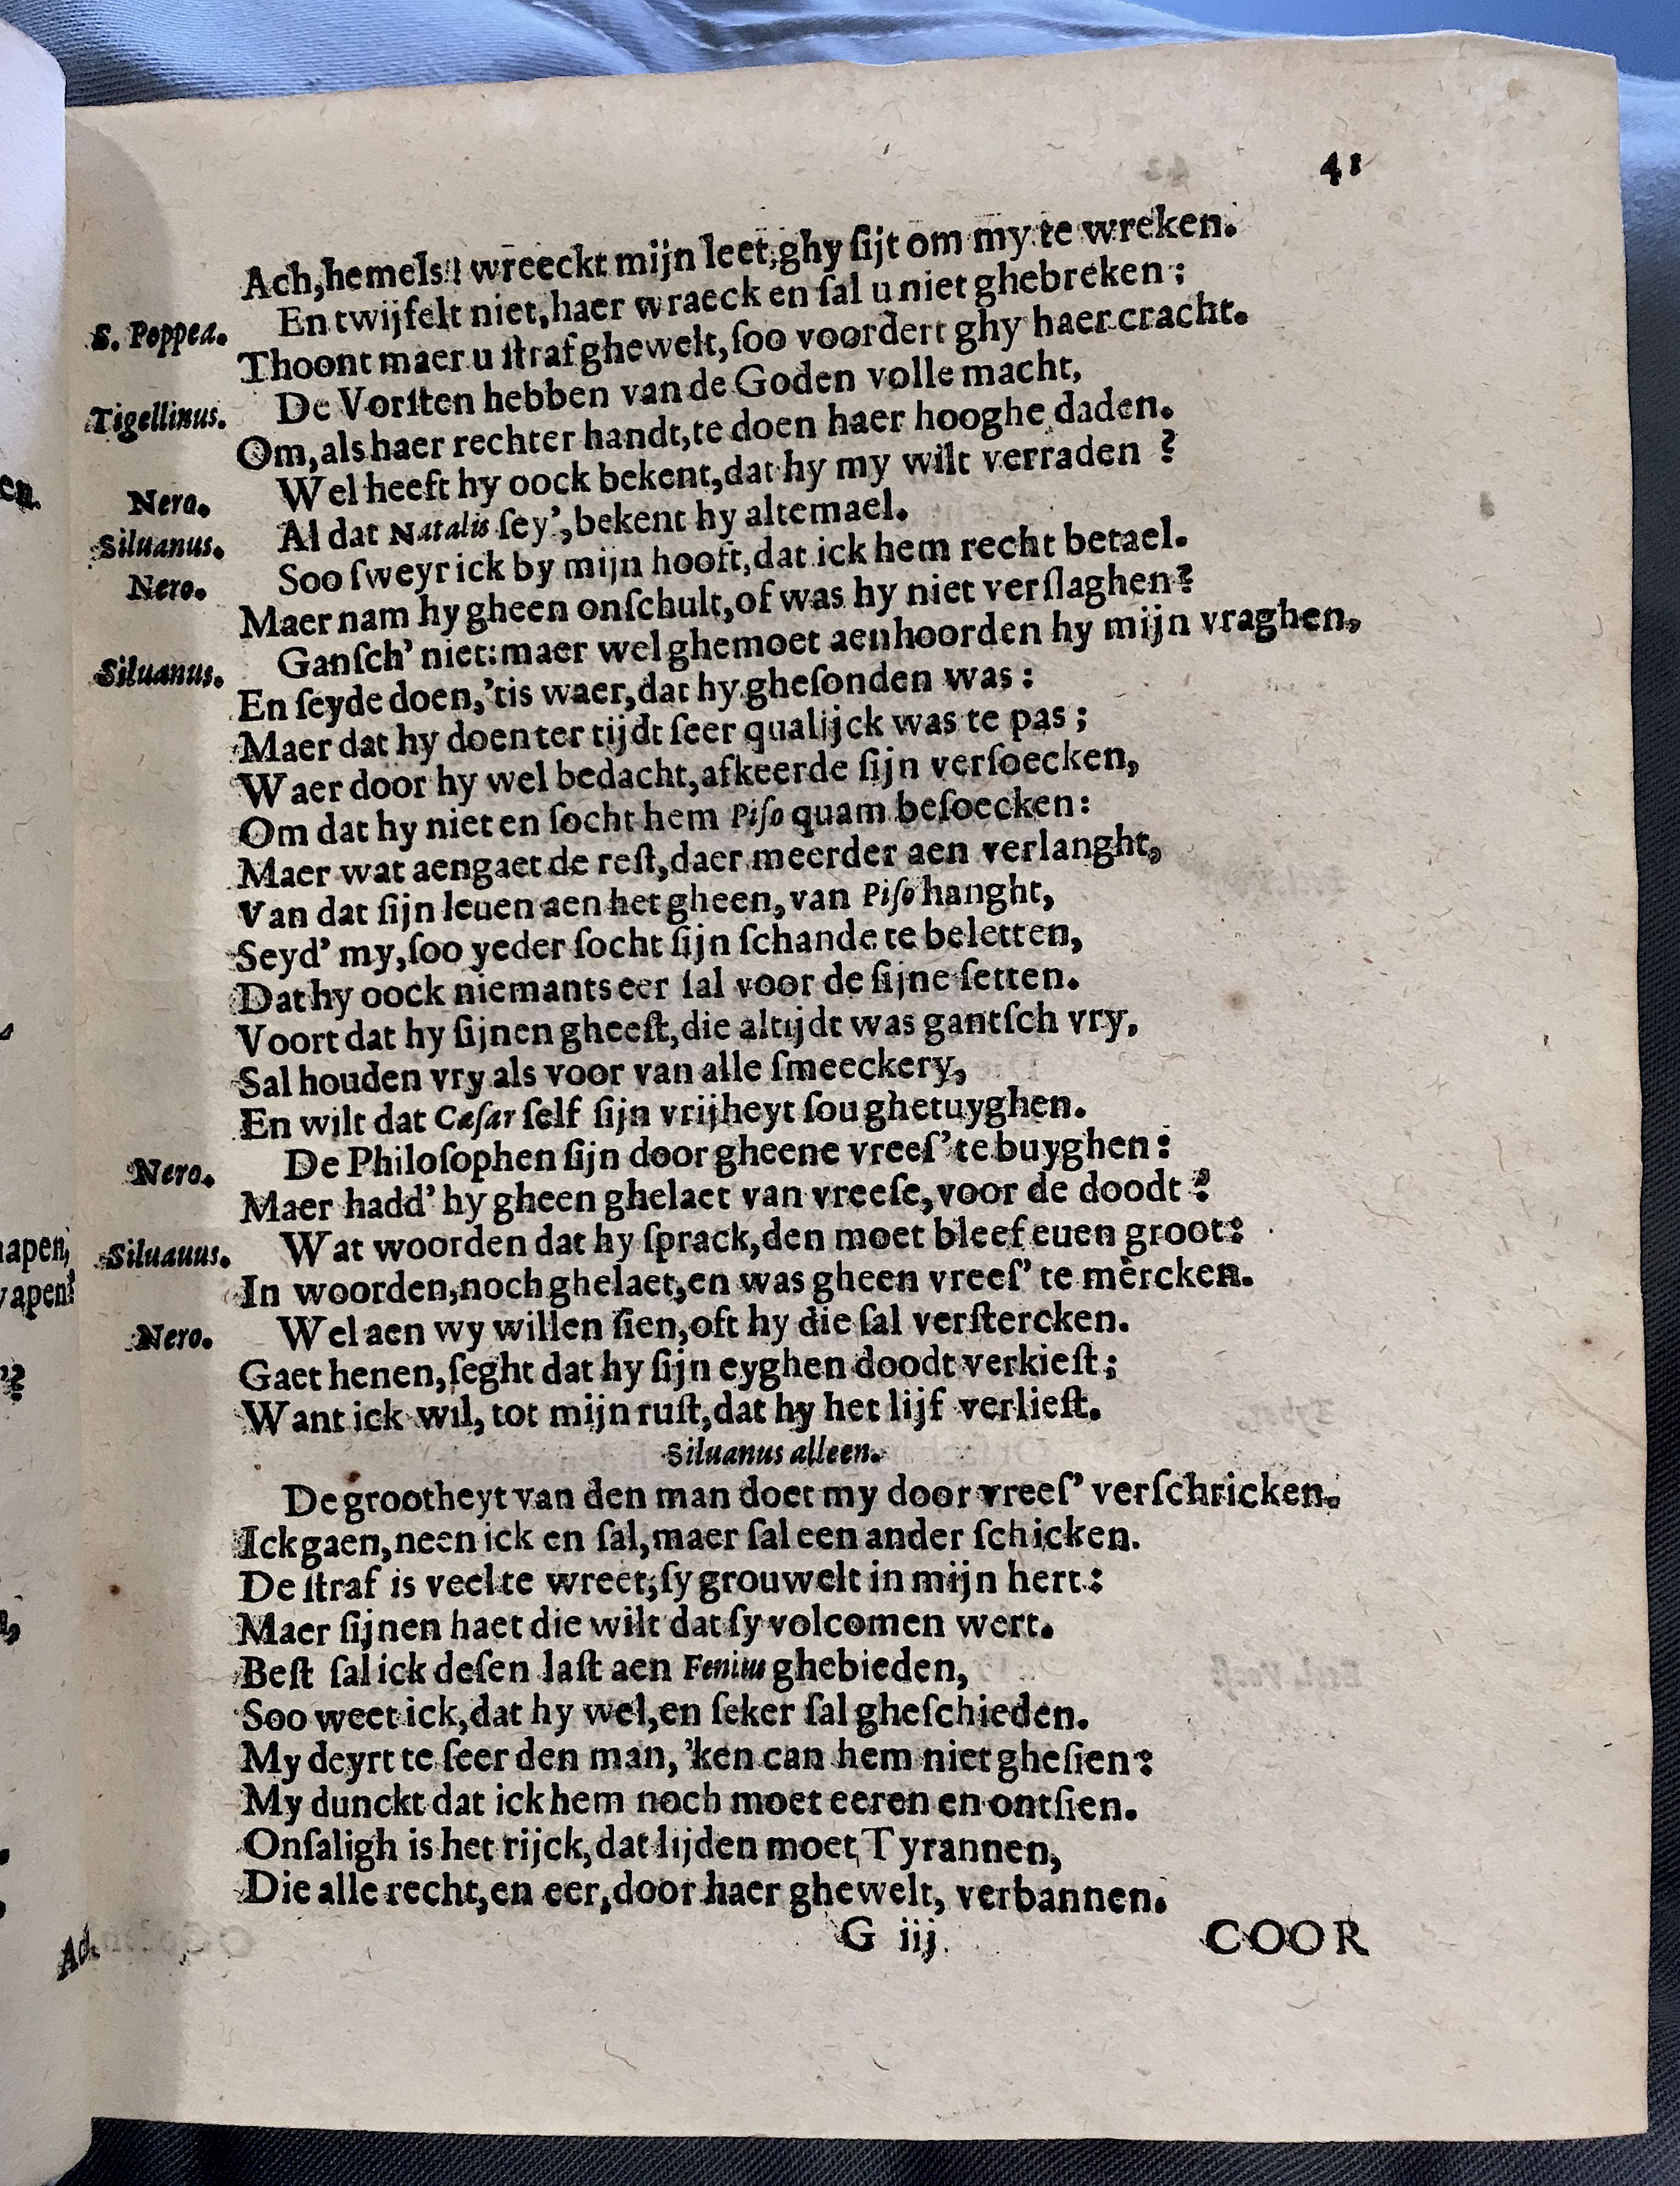 41
Ach, hemels! wreeckt mijn leet, ghy ſijt om my te wreken.
S. Poppea. En twijfelt niet, haer wraeck en ſal u niet ghebreken;
Thoont maer u ſtraf ghewelt, ſoo voordert ghy haer cracht.
Tigellinus. De Vorſten hebben van de Goden volle macht,
Om, als haer rechter handt, te doen haer hooghe daden.
Nero. Wel heeft hy oock bekent, dat hy my wilt verraden?
Siluanus. Al dat Natalis ſey', bekent hy altemael.
Nero. Soo ſweyr ick by mijn hooft, dat ick hem recht betael.
Maer nam hy gheen onſchult, of was hy niet verſlaghen?
Siluanus. Ganſch' niet: maer wel ghemoet aenhoorden hy mijn vraghen,
En ſeyde doen, 'tis waer, dat hy gheſonden was:
Maer dat hy doen ter tijdt ſeer qualijck was te pas;
Waer door hy wel bedacht, afkeerde ſijn verſoecken,
Om dat hy niet en ſocht hem Piſo quam beſoecken:
Maer wat aengaet de reſt, daer meerder aen verlanght,
Van dat ſijn leuen aen het gheen, van Piſo hanght,
Seyd' my, ſoo yeder ſocht ſijn ſchande te beletten,
Dat hy oock niemants eer ſal voor de ſijne ſetten.
Voort dat hy ſijnen gheeſt, die altijdt was gantſch vry,
Sal houden vry als voor van alle ſmeeckery,
En wilt dat Cæſar ſelf ſijn vrijheyt ſou ghetuyghen.
Nero. De Philoſophen ſijn door gheene vreeſ' te buyghen:
Maer hadd' hy gheen ghelaet van vreeſe, voor de doodt?
Siluanus. Wat woorden dat hy ſprack, den moet bleef euen groot:
In woorden, noch ghelaet, en was gheen vreeſ' te mercken.
Nero. Wel aen wy willen ſien, oft hy die ſal verſtercken.
Gaet henen, ſeght dat hy ſijn eyghen doodt verkieſt;
Want ick wil, tot mijn ruſt, dat hy het lijf verlieſt.
Siluanus alleen.
De grootheyt van den man doet my door vreeſ' verſchricken.
Ick gaen, neen ick en ſal, maer ſal een ander ſchicken.
De ſtraf is veel te wreet, ſy grouwelt in mijn hert:
Maer ſijnen haet die wilt dat ſy volcomen wert.
Beſt ſal ick deſen laſt aen Fenius ghebieden,
Soo weet ick, dat hy wel, en ſeker ſal gheſchieden.
My deyrt te ſeer den man, 'ken can hem niet gheſien:
My dunckt dat ick hem noch moet eeren en ontſien.
Onſaligh is het rijck, dat lijden moet Tyrannen,
Die alle recht, en eer, door haer ghewelt, verbannen.
G iij
COOR